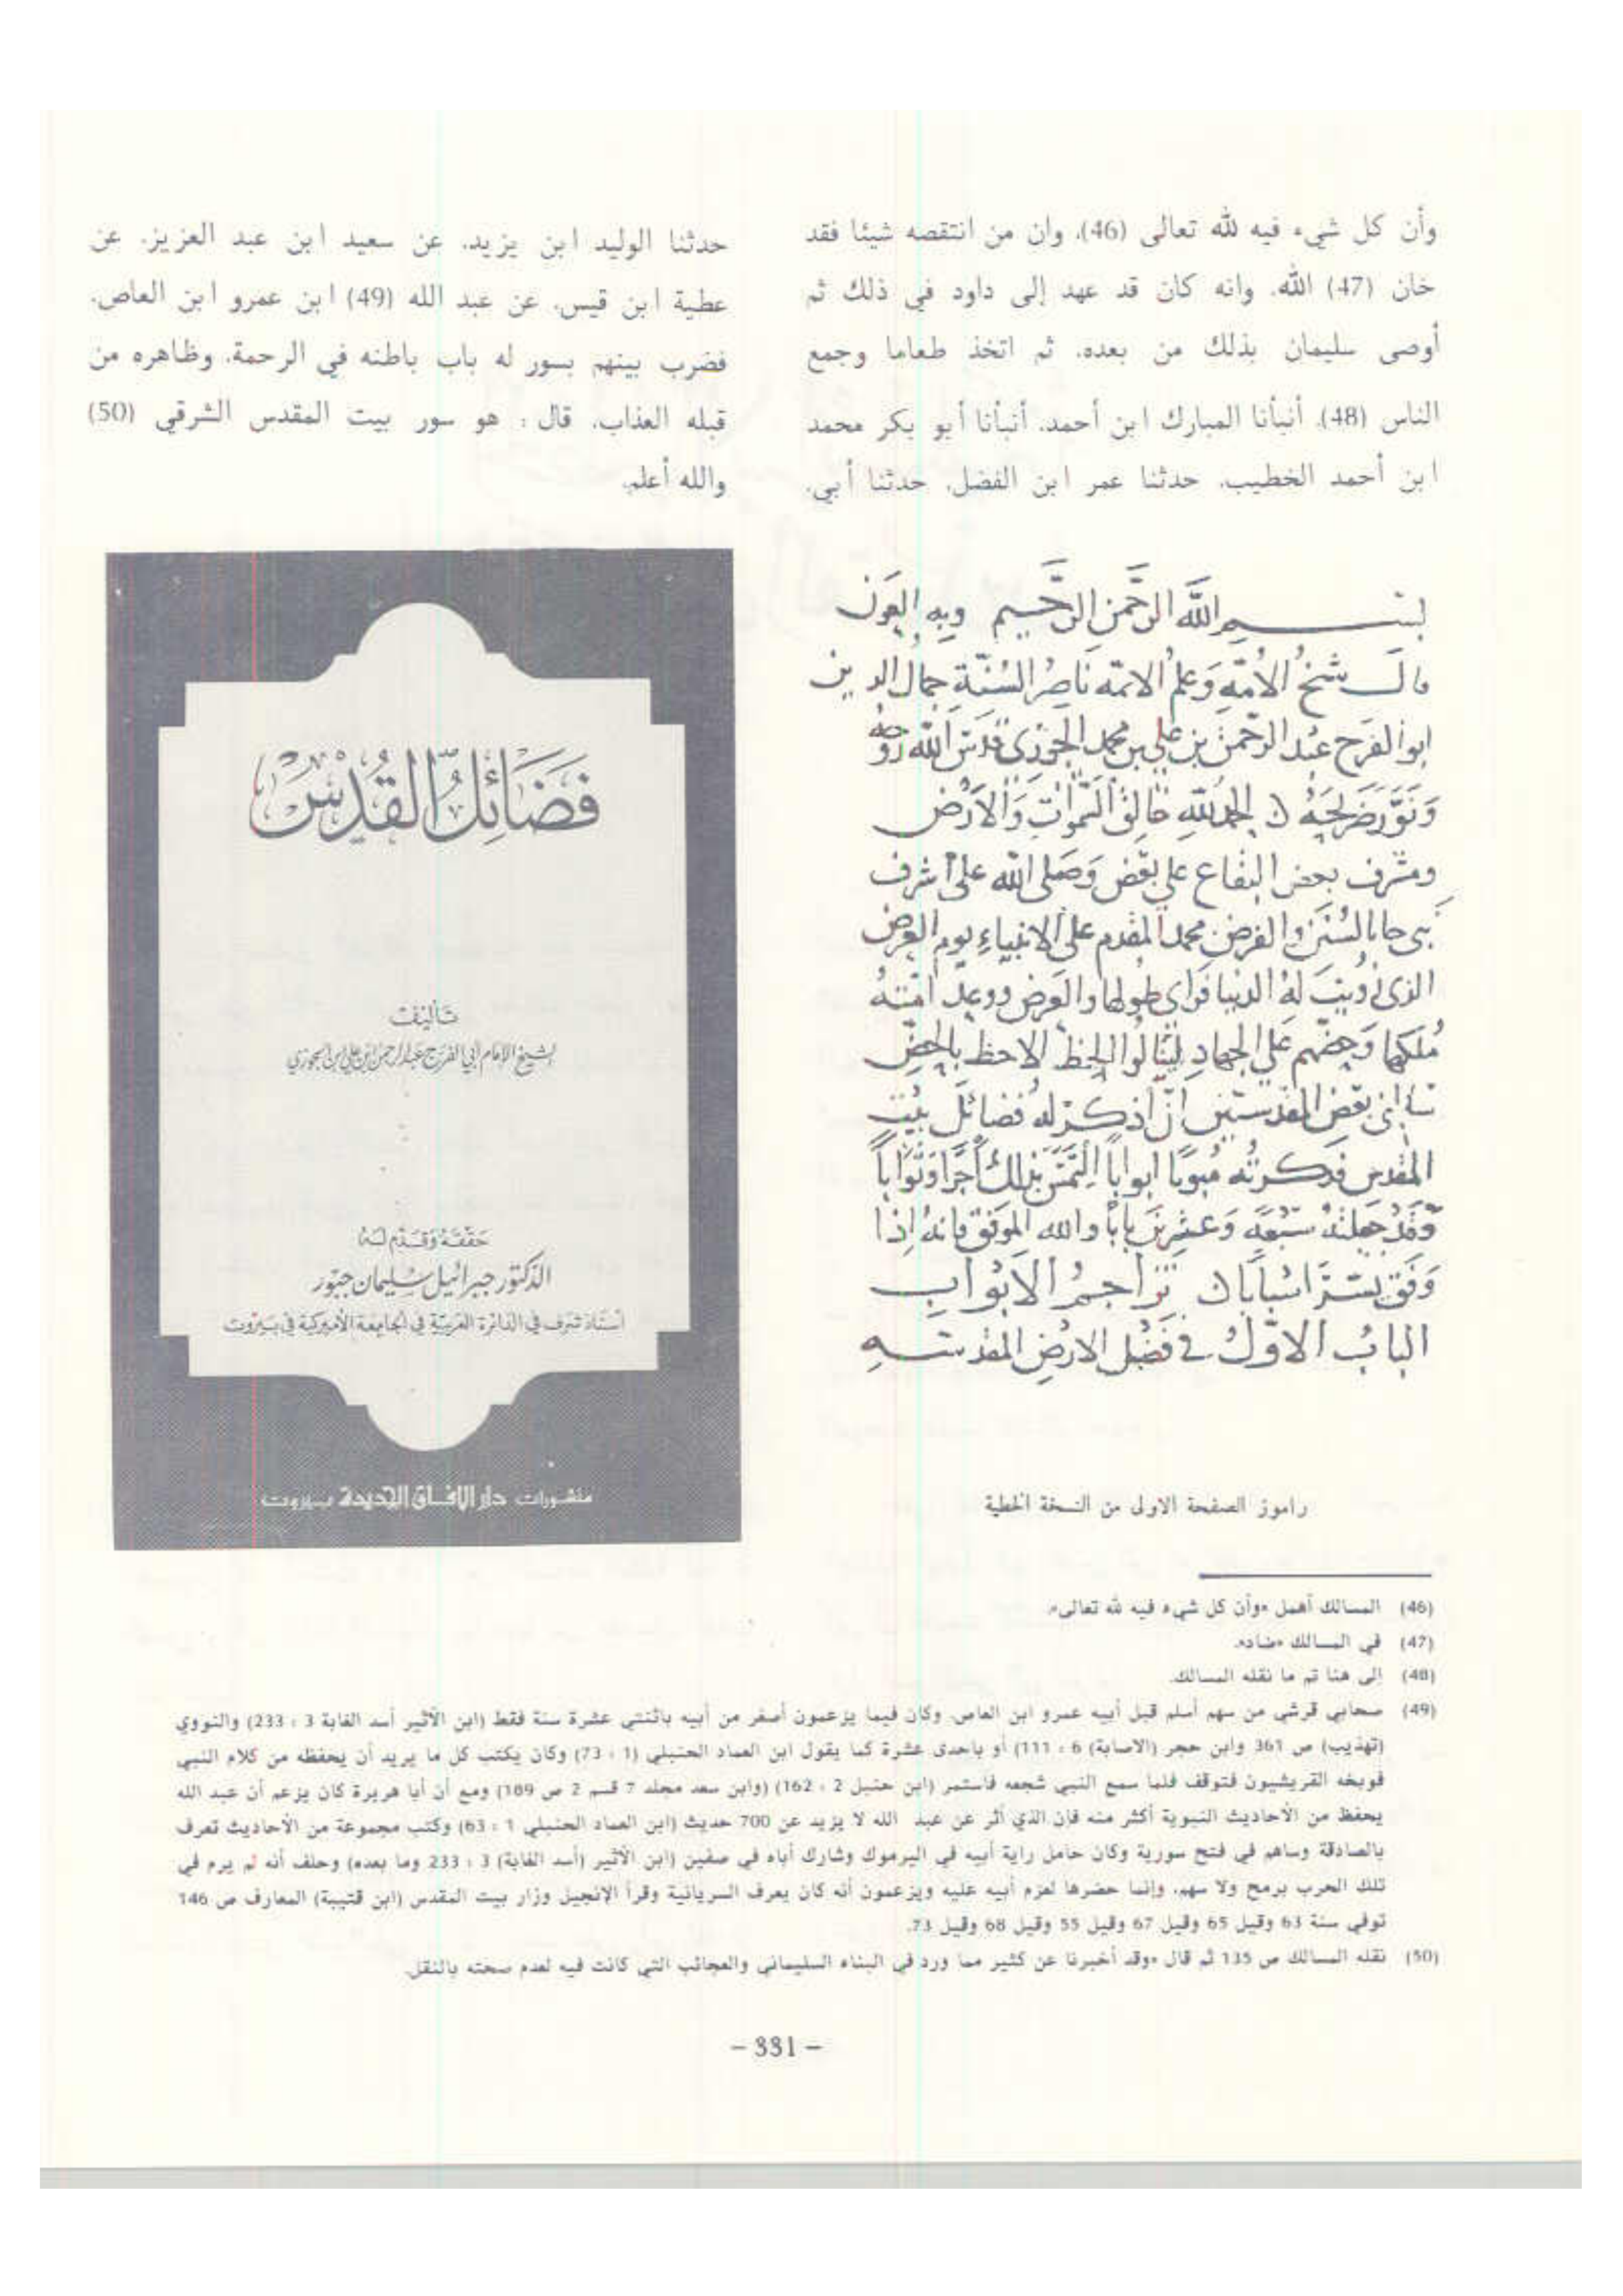 وأن كل شيء فيه لله تعالى (46)، وان من انتقصه شيئا فقد
خان (47) الله. وانه كان قد عهد إلى داود في ذلك ثم
أوصى سليمان بذلك من بعده. ثم اتخذ طعاما وجمع
الناس (48). أنبأنا المبارك ابن أحمد، أنبأنا أبو بكر محمد
ابن أحمد الخطيب. حدثنا عمر ابن الفضل. حدثنا أبي.
حدثنا الوليد ابن يزيد. عن سعيد ابن عبد العزيز. عن
عطية ابن قيس. عن عبد الله (49) ابن عمرو ابن العاص.
فضرب بينهم بسور له باب باطنه في الرحمة. وظاهره من
قبله العذاب. قال : هو سور بيت المقدس الشرقي (50)
والله أعلم.
بسم الله الرحمن الرحيم وبه العون
قال شيخ الأمة وعلم الائمة ناصر السنة جمال الدين
ابو الفرج عبد الرحمن بن علي بن محمد الجوزي قدس الله روحه
ونور ضريحه الحمد لله خالق السموات والارض
ومشرف بعض البقاع على بعض وصلى الله على اشرف
نبي جا بالسنن والفرض محمد المقدم على الانبياء يوم العرض
الذي زويت له الدنيا فراى طولها والعرض ووعد امته
ملكها وحضهم على الجهاد لينالوا الحظ الاحظ بالحض
سالني بعض المقدسيين ان اذكر له فضائل بيت
المقدس فذكرته مبوبا ابوابا بذلك أجرا وثوابا
وقد جعلته سبعة وعشرين بابا والله الموفق فانه إذا
وفق يسر اسبابا تراجم الابواب
الباب الاول في فضل الارض المقدسه
راموز الصفحة الاولى من النسخة الخطية
فضائل القدس
تأليف
لشيخ الإمام أبي الفرج عبد الرحمن ابن علي ابن الجوزي
حققه وقدم له
الدكتور جبرائيل سليمان جبور
أستاذ شرف في الدائرة العربية في الجامعة الأميركية في بيروت
منشورات دار الآفاق الجديدة بيروت
(46) المسالك أهمل «وأن كل شيء فيه لله تعالى».
(47) في المسالك «ضاد».
(48) إلى هنا تم ما نقله المسالك.
(49) صحابي قرشي من سهم أسلم قبل أبيه عمرو ابن العاص. وكان فيما يزعمون أصغر من أبيه باثنتي عشرة سنة فقط (ابن الأثير أسد الغابة 3 : 233) والنووي
(تهذيب) ص 361 وابن حجر (الاصابة) 6 : 111) أو باحدى عشرة كما يقول ابن العماد الحنبلي (1 : 73) وكان يكتب كل ما يريد أن يحفظه من كلام النبي
فوبخه القريشيون فتوقف فلما سمع النبي شجعه فاستمر (ابن حنبل 2 : 162) (وابن سعد مجلد 7 قسم 2 ص 189) ومع أن أبا هريرة كان يزعم أن عبد الله
يحفظ من الأحاديث النبوية أكثر منه فان الذي أثر عن عبد الله لا يزيد عن 700 حديث (ابن العماد الحنبلي 1 : 63) وكتب مجموعة من الأحاديث تعرف
بالصادقة وساهم في فتح سورية وكان حامل راية أبيه في اليرموك وشارك أباه في صفين (ابن الأثير (أسد الغابة) 3 : 233 وما بعده) وحلف أنه لم يرم في
تلك الحرب برمح ولا سهم. وإنما حضرها لعزم أبيه عليه ويزعمون أنه كان يعرف السريانية وقرأ الإنجيل وزار بيت المقدس (ابن قتيبة) المعارف ص 146
توفي سنة 63 وقيل 65 وقيل 67 وقيل 55 وقيل 68 وقيل 73.
(50) نقله المسالك ص 135 ثم قال «وقد أخبرنا عن كثير مما ورد في البناء السليماني والعجائب التي كانت فيه لعدم صحته بالنقل.
– 331 –